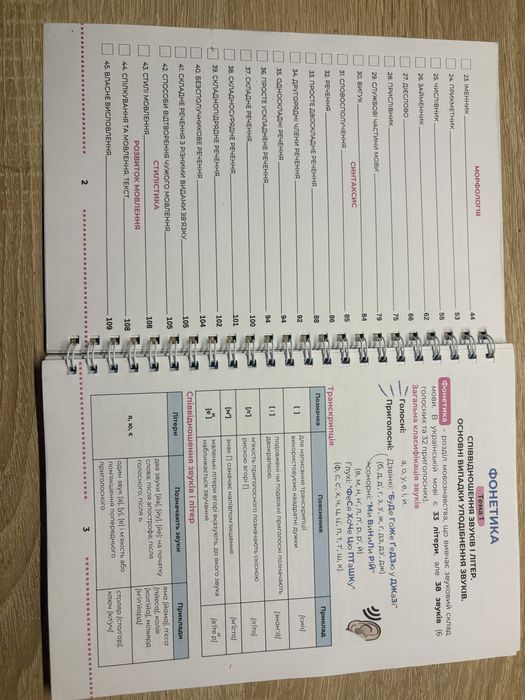 МОРФОЛОГІЯ
23. ІМЕННИК 44
24. ПРИКМЕТНИК 53
25. ЧИСЛІВНИК 55
26. ЗАЙМЕННИК 62
27. ДІЄСЛОВО 66
28. ПРИСЛІВНИК 75
29. СЛУЖБОВІ ЧАСТИНИ МОВИ 79
30. ВИГУК 84
СИНТАКСИС
31. СЛОВОСПОЛУЧЕННЯ 85
32. РЕЧЕННЯ 86
33. ПРОСТЕ ДВОСКЛАДНЕ РЕЧЕННЯ 88
34. ДРУГОРЯДНІ ЧЛЕНИ РЕЧЕННЯ 92
35. ОДНОСКЛАДНІ РЕЧЕННЯ 94
36. ПРОСТЕ УСКЛАДНЕНЕ РЕЧЕННЯ 94
37. СКЛАДНЕ РЕЧЕННЯ 100
38. СКЛАДНОСУРЯДНЕ РЕЧЕННЯ 101
39. СКЛАДНОПІДРЯДНЕ РЕЧЕННЯ 102
40. БЕЗСПОЛУЧНИКОВЕ РЕЧЕННЯ 104
41. СКЛАДНЕ РЕЧЕННЯ З РІЗНИМИ ВИДАМИ ЗВ'ЯЗКУ 105
42. СПОСОБИ ВІДТВОРЕННЯ ЧУЖОГО МОВЛЕННЯ 105
СТИЛІСТИКА
43. СТИЛІ МОВЛЕННЯ 108
РОЗВИТОК МОВЛЕННЯ
44. СПІЛКУВАННЯ ТА МОВЛЕННЯ. ТЕКСТ 108
45. ВЛАСНЕ ВИСЛОВЛЕННЯ 109
2
ФОНЕТИКА
Тема 1
СПІВВІДНОШЕННЯ ЗВУКІВ І ЛІТЕР.
ОСНОВНІ ВИПАДКИ УПОДІБНЕННЯ ЗВУКІВ.
Фонетика – розділ мовознавства, що вивчає звуковий склад
мови. В українській мові є 33 літери, але 38 звуків (6
голосних та 32 приголосних).
Загальна класифікація звуків
Голосні: а, о, у, е, і, и
Приголосні: Дзвінкі: "БуДе ГоЖе ҐеДЗю у ДЖаЗі"
(б, д, д', г, з, з', ж, ґ, дз, дз', дж)
сонорні: "Ми ВиНиЛи РіЙ"
(в, м, н, н', л, л', р, р', й)
Глухі: "ФоСя ХоЧе Цю ПТаШКу"
(ф, с, с', х, ч, ц, ц', п, т, т', ш, к)
Транскрипція
Позначка Пояснення Приклад
[ ] для написання транскрипції
використовуємо квадратні дужки [син]
[ : ] подовжені чи подвоєні приголосні позначають
двокрапкою.
[л'] м'якість приголосного позначають скісною
рискою вгорі [']
[м'] знак ['] означає напівпом'якшення [м'істо]
[еи] маленькі літери вгорі вказують, до якого звука
наближається звучання
Співвідношення звуків і літер
Літери Позначають звуки Приклади
я, ю, є два звуки [йа], [йу], [йе]: на початку
слова; після апострофа; після
голосного; після ь
один звук [а], [у], [е] і м'якість або
пом'якшення попереднього
приголосного
3